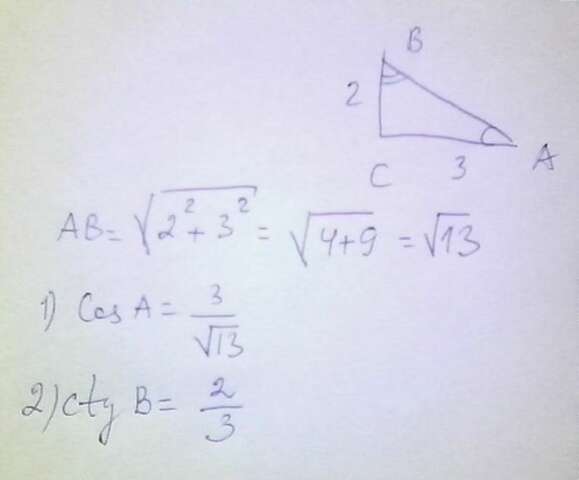 B
2
C 3 A
AB = √(2² + 3²) = √(4+9) = √13
1) Cos A = 3/√13
2) ctg B = 2/3